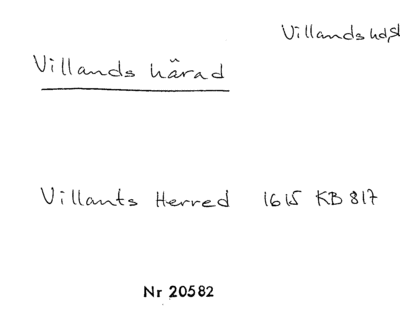 Villands hd,Sk
Villands härad
Villants Herred 1615 KB 817
Nr 20582